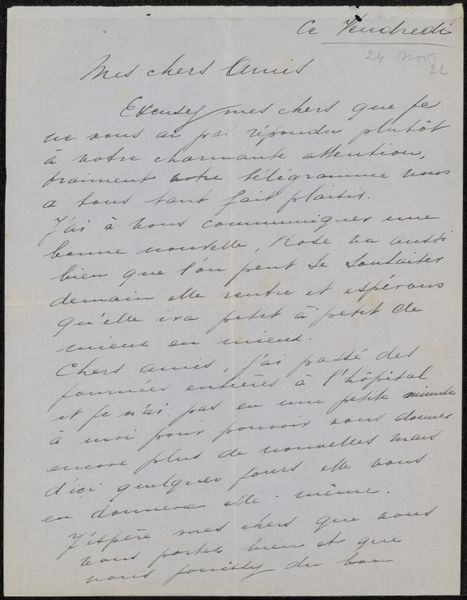 Ce Vendredi
24 Nov.
22
Mes chers Amis
Excusez mes chers que je
ne vous ai pas répondu plutôt
à votre charmante attention,
vraiment votre télégramme nous
a tous tant fait plaisir.
J'ai à vous communiquer une
bonne nouvelle, Rose va aussi
bien que l'on peut le souhaiter
demain elle rentre et espérons
qu'elle ira petit à petit de
mieux en mieux.
Chers amis, j'ai passé des
journées entières à l'hôpital
et je n'ai pas eu une petite minute
à moi pour pouvoir vous donner
encore plus de nouvelles mais
d'ici quelques jours elle vous
en donnera elle-même.
J'espère mes chers que vous
vous portez bien et que
vous jouissez du bon